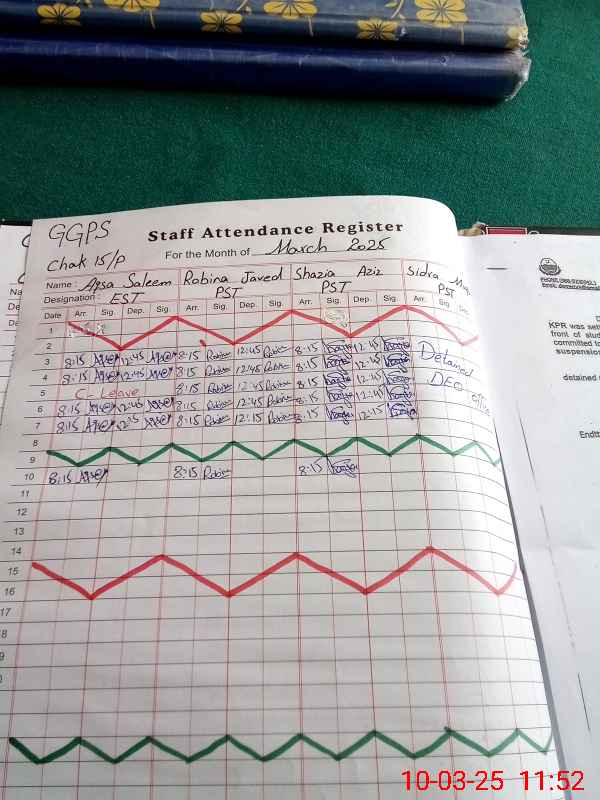 GGPS
Staff Attendance Register
Chak 15/P
For the Month of March 2025
Name : Apsa Saleem Robina Javed Shazia Aziz Sidra
Designation : EST PST PST PST
Date Arr. Sig. Dep. Sig. Arr. Sig. Dep. Sig. Arr. Sig. Dep. Sig. Arr. Sig. Dep.
1
2
3 8:15 12:45 8:15 Robina 12:45 Robina 8:15 12:45 Detained
4 8:15 12:45 8:15 Robina 12:45 Robina 8:15 12:45 DEO office
5 C-Leave 8:15 Robina 12:45 Robina 8:15 12:45
6 8:15 12:45 8:15 Robina 12:45 Robina 8:15 12:45
7 8:15 12:15 8:15 Robina 12:15 Robina 8:15 12:15
8
9
10 8:15 8:15 Robina 8:15
11
12
13
14
15
16
17
KPR was
front of
committed to
suspension
detained
10-03-25 11:52